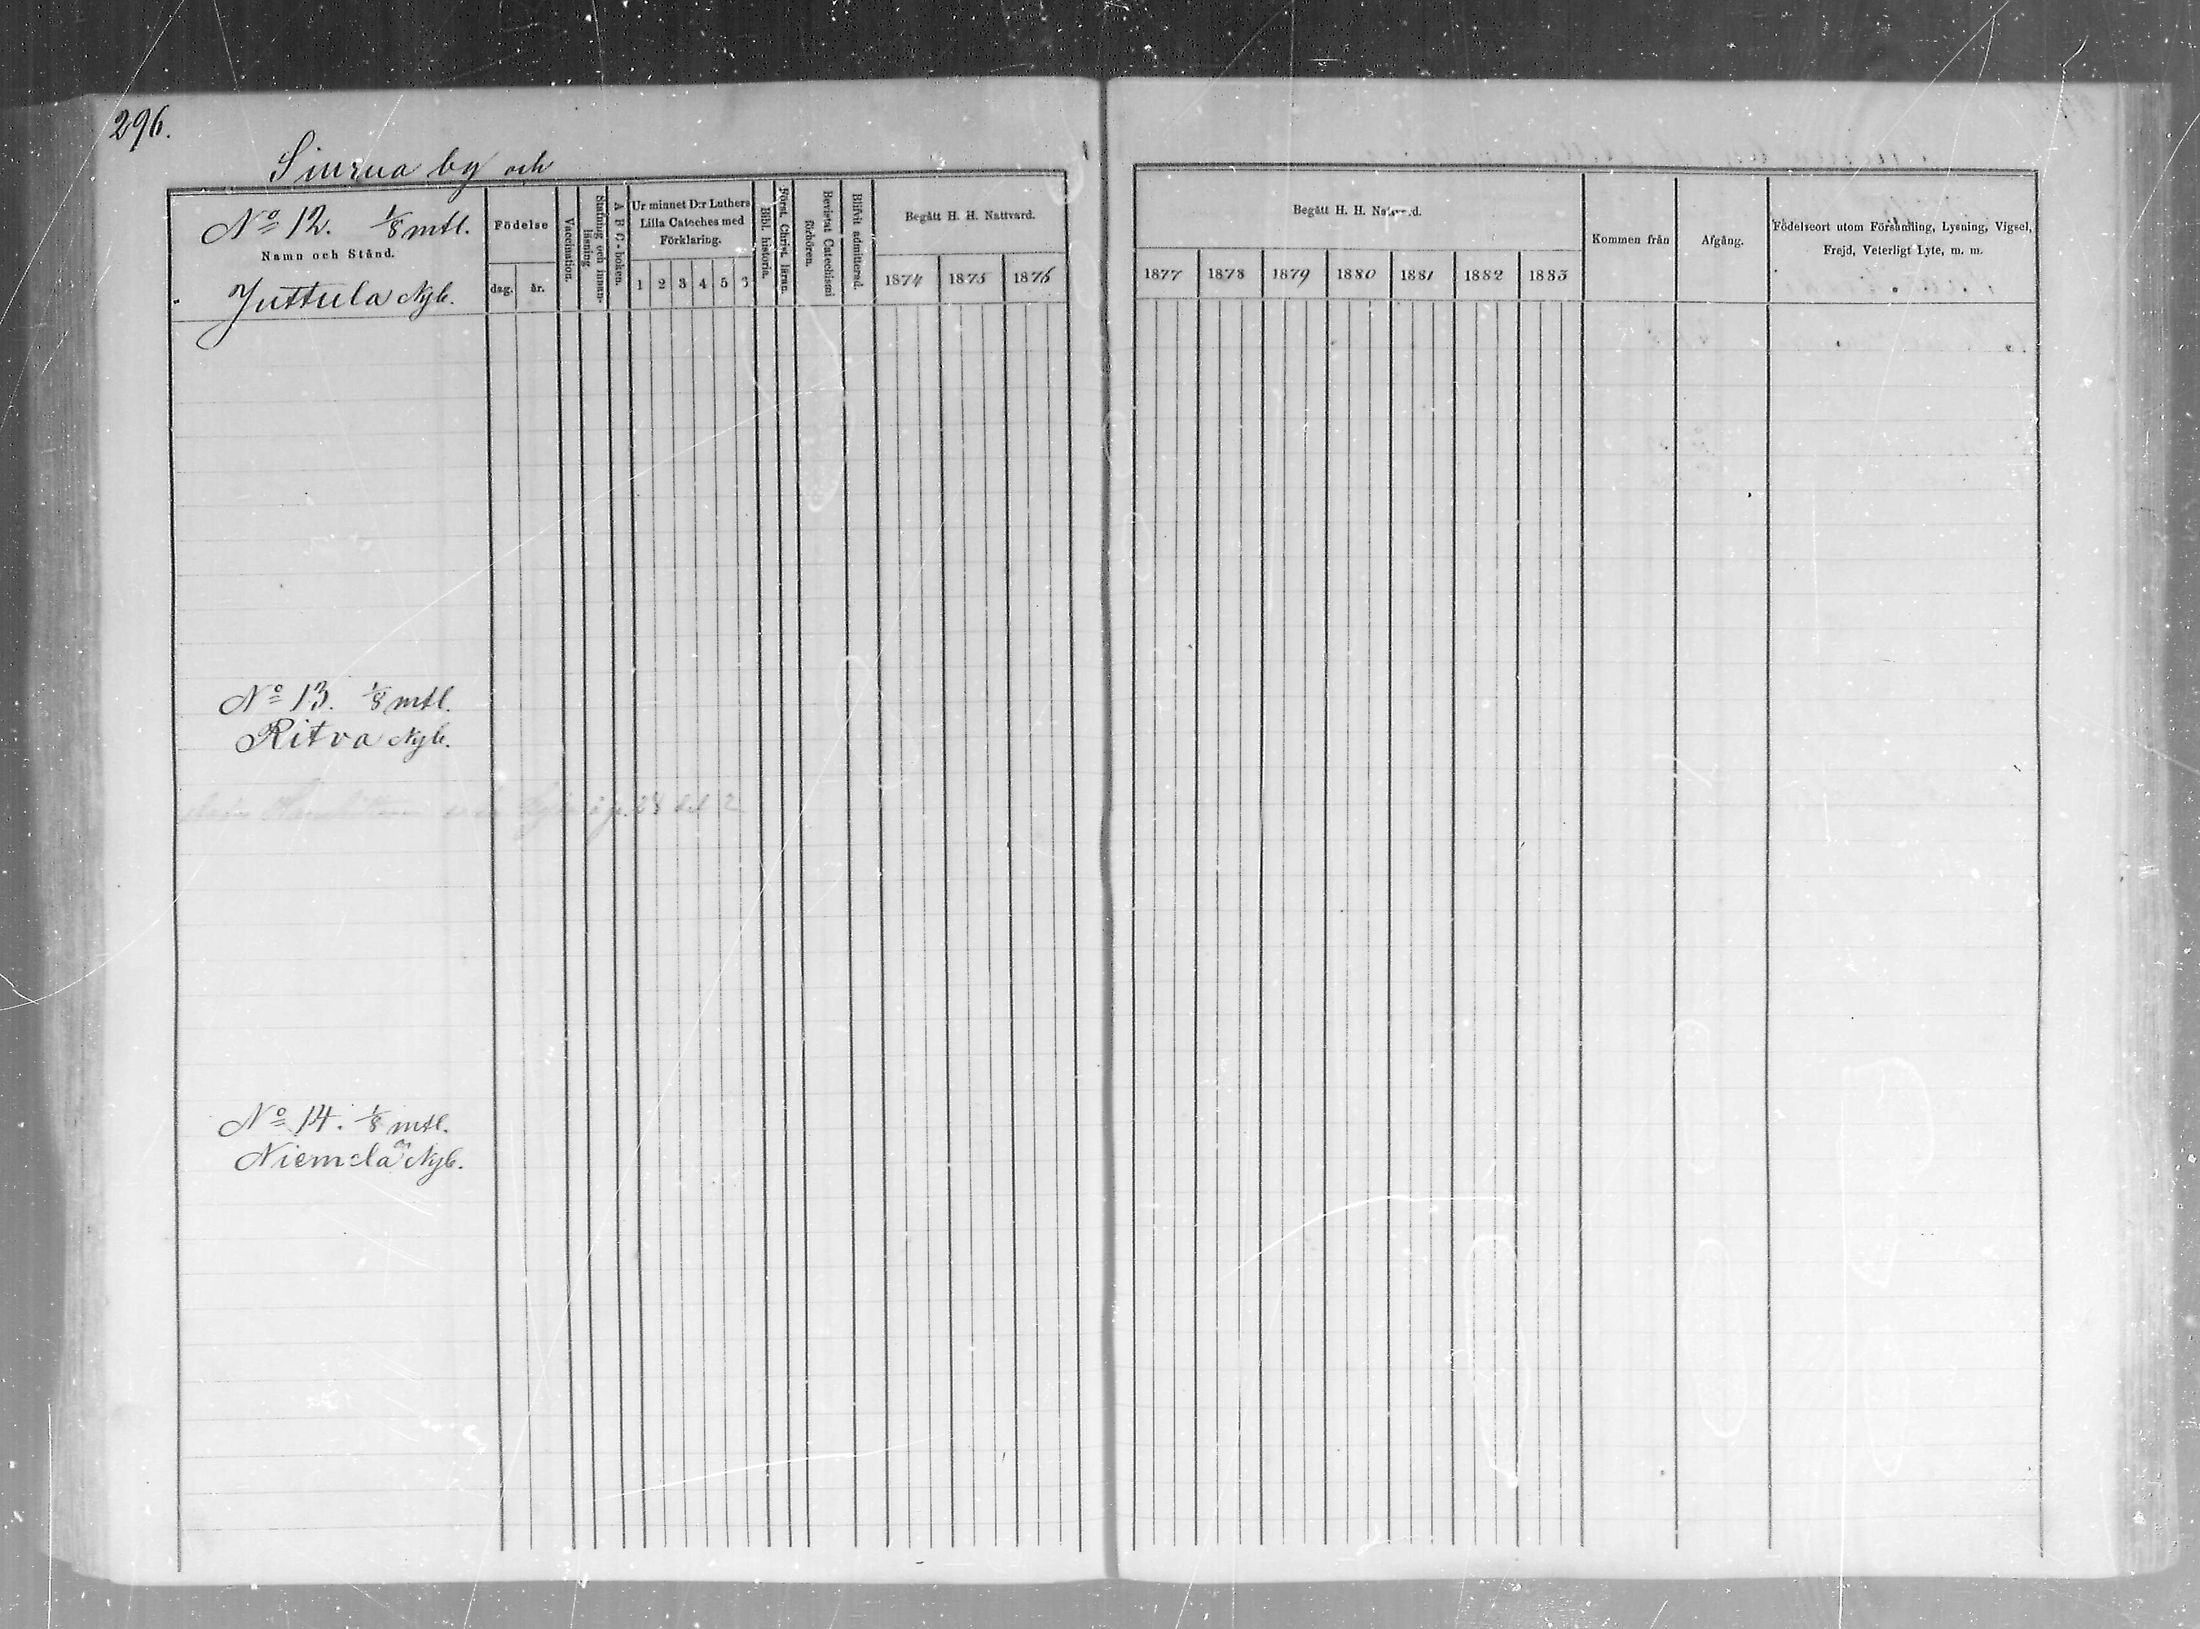 296.
Siurua by och
No 12. 1/8 mtl.
Namn och Stånd.
Juttula Nyb.
Födelse
dag. år.
Vaccination.
Stafning och innan-
läsning
A B C-boken.
Ur minnet D:r Luthers
Lilla Cateches med
Förklaring.
1 2 3 4 5 3
Bibl. historia.
Först. Christ. läran.
Bevistat Catechismi
förhören.
Blifvit admitterad.
Begått H. H. Nattvard.
1874 1875 1876
Begått H. H. Nattvard.
1877 1878 1879 1880 1881 1882 1883
Kommen från
Afgång.
Födelseort utom Församling, Lysning, Vigsel,
Frejd, Veterligt Lyte, m. m.
No 13. 1/8 mtl.
Ritva Nyb.
No 14. 1/8 mtl.
Niemelä Nyb.